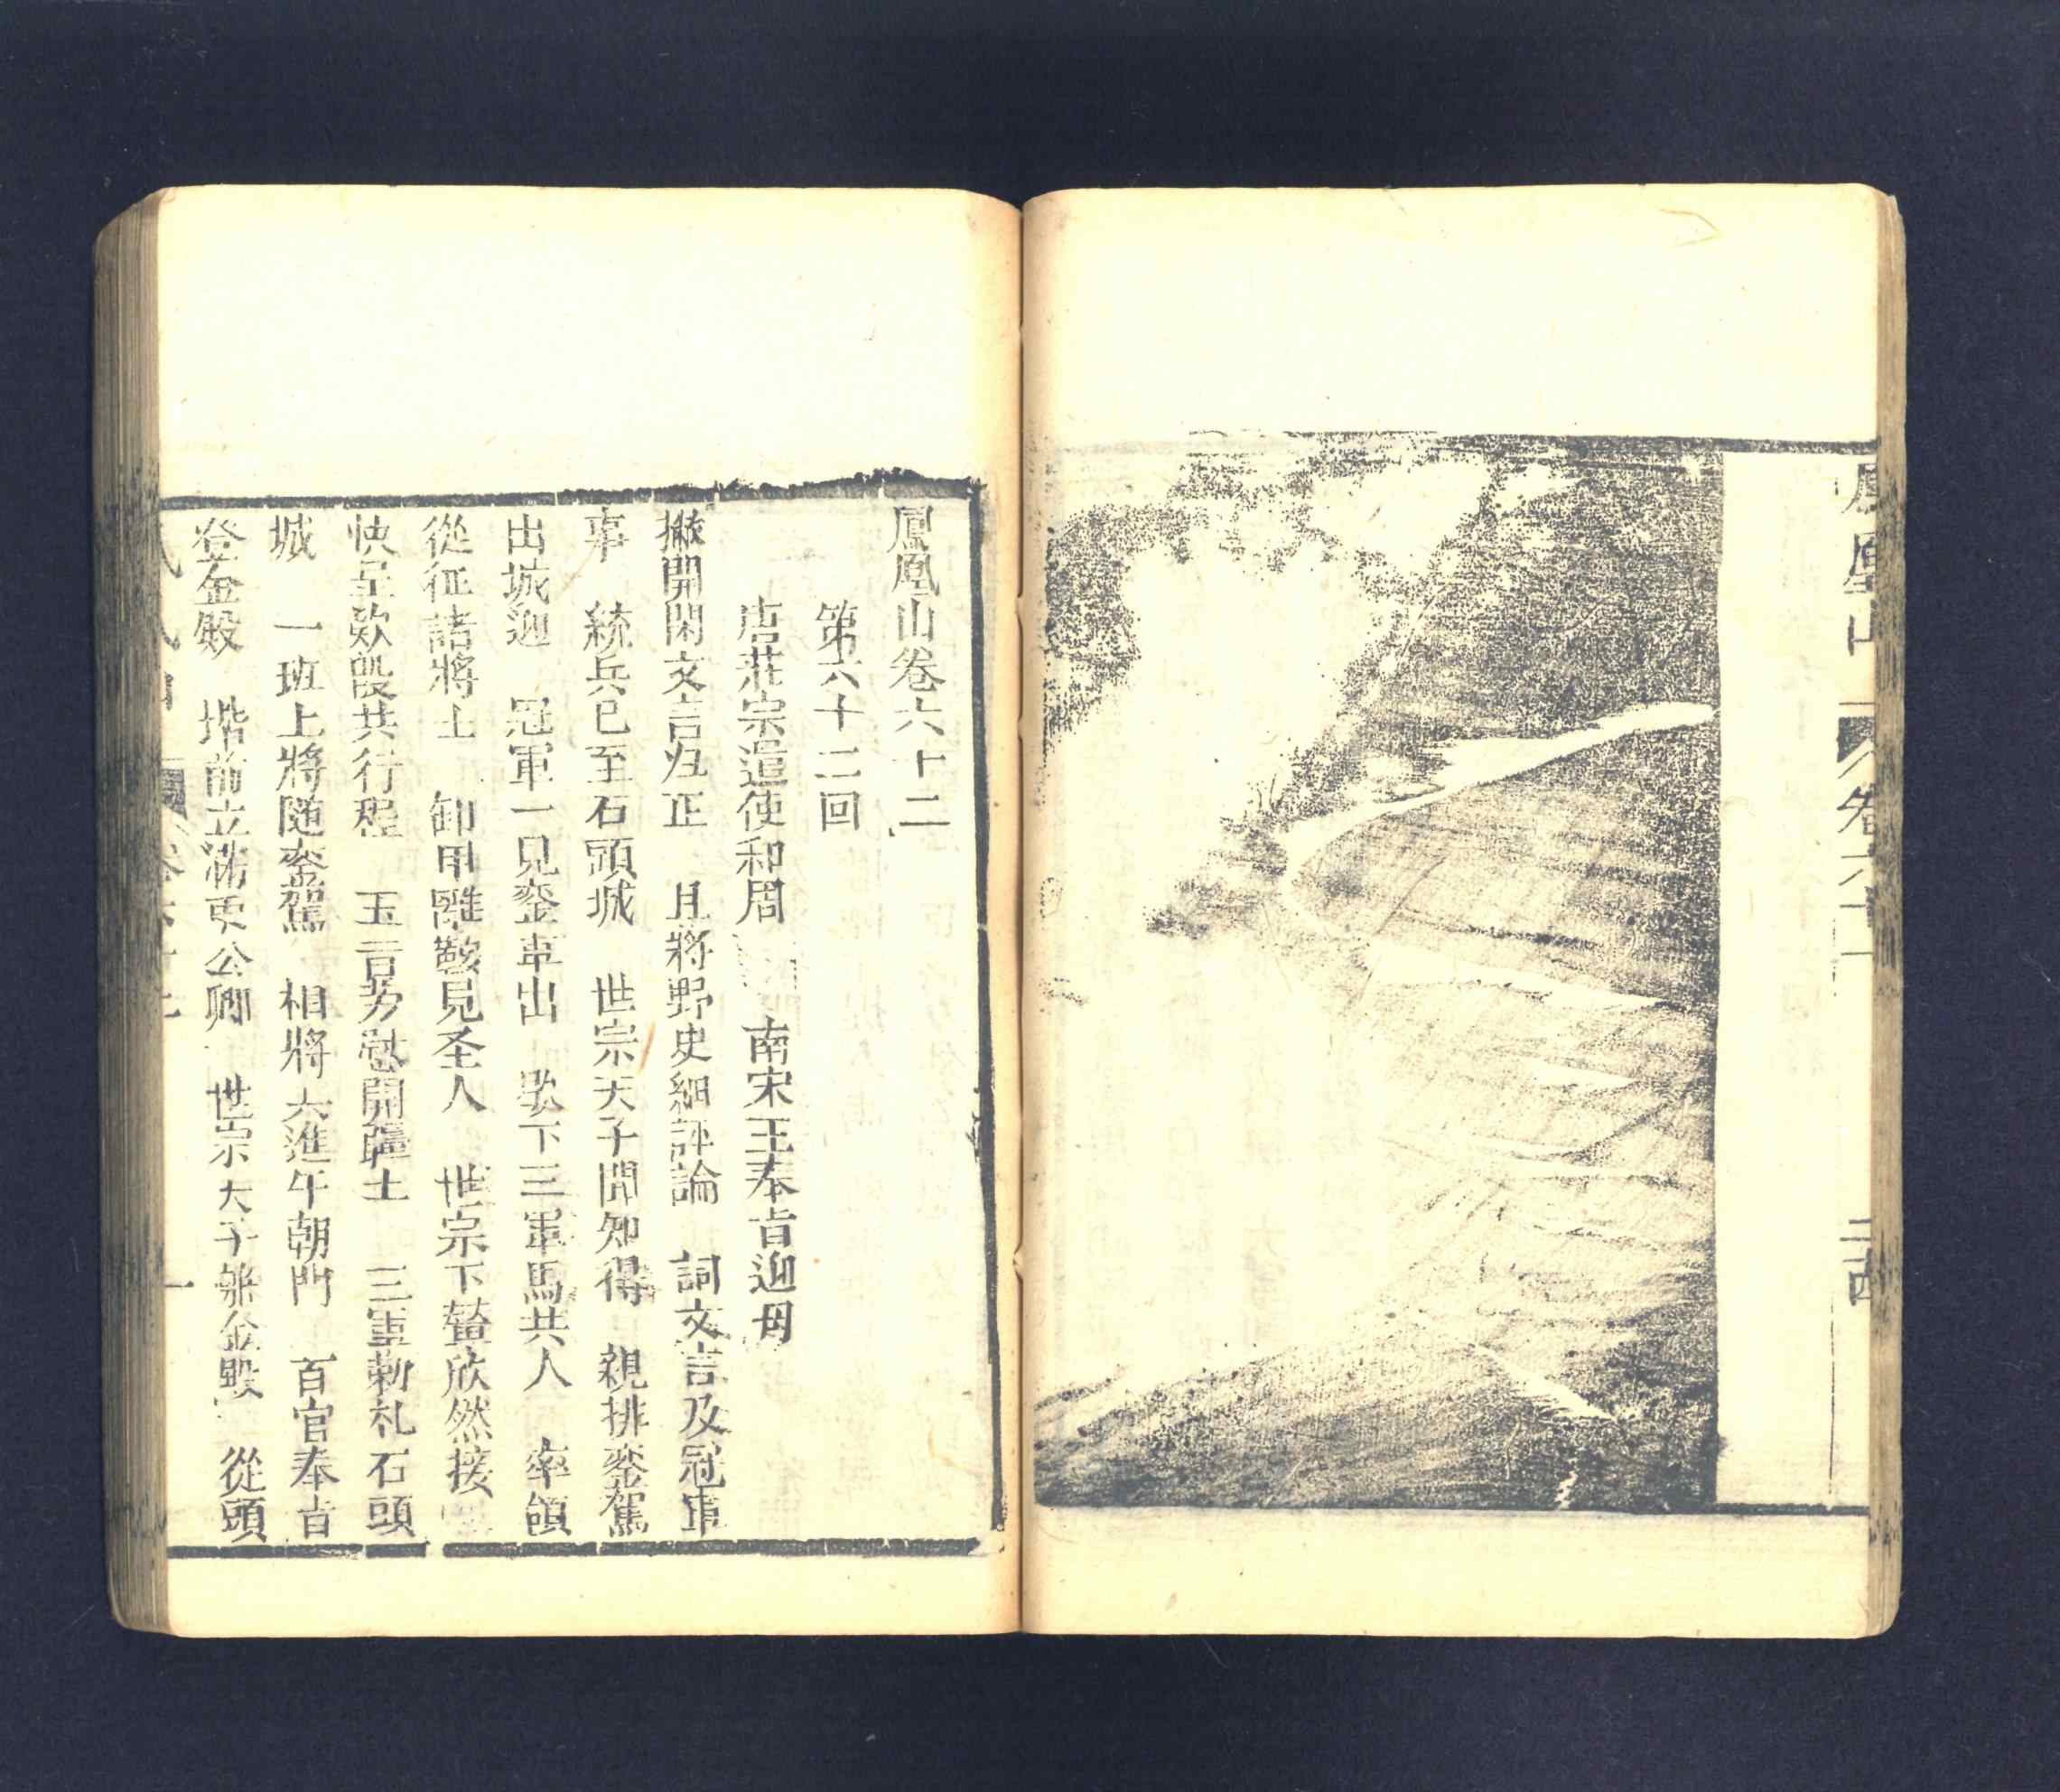 鳳凰山 卷六十一 二十四
鳳凰山卷六十二
第六十二回
唐莊宗遣使和周 南宋王奉旨迎母
撇開閑文言归正 且將野史細評論 詞文言及冠軍
事 統兵已至石頭城 世宗天子聞知得 親排銮駕
出城迎 冠軍一見銮車出 歇下三軍馬共人 率領
從征諸將士 卸甲離鞍見圣人 世宗下輦欣然接
快呈欵叚共行程 玉言劳慰開疆士 三軍勅札石頭
城 一班上將随銮駕 相將六進午朝門 百官奉旨
登金殿 堦前立滿更公卿 世宗天子登金殿 從頭